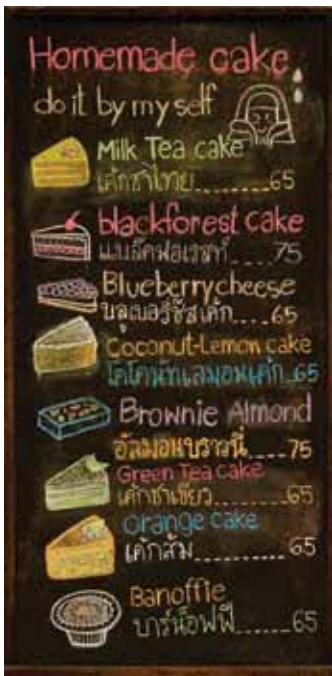 Homemade cake
do it by my self
Milk Tea cake
เค้กชาไทย........65
blackforest cake
แบล็คฟอเรสท์....75
Blueberrycheese
บลูเบอรี่ชีสเค้ก....65
Coconut-Lemon cake
โคโคนัทเลมอนเค้ก 65
Brownie Almond
อัลมอนบราวนี่....75
Green Tea cake
เค้กชาเขียว........65
Orange cake
เค้กส้ม..........65
Banoffie
บาร์น็อฟฟี่......65